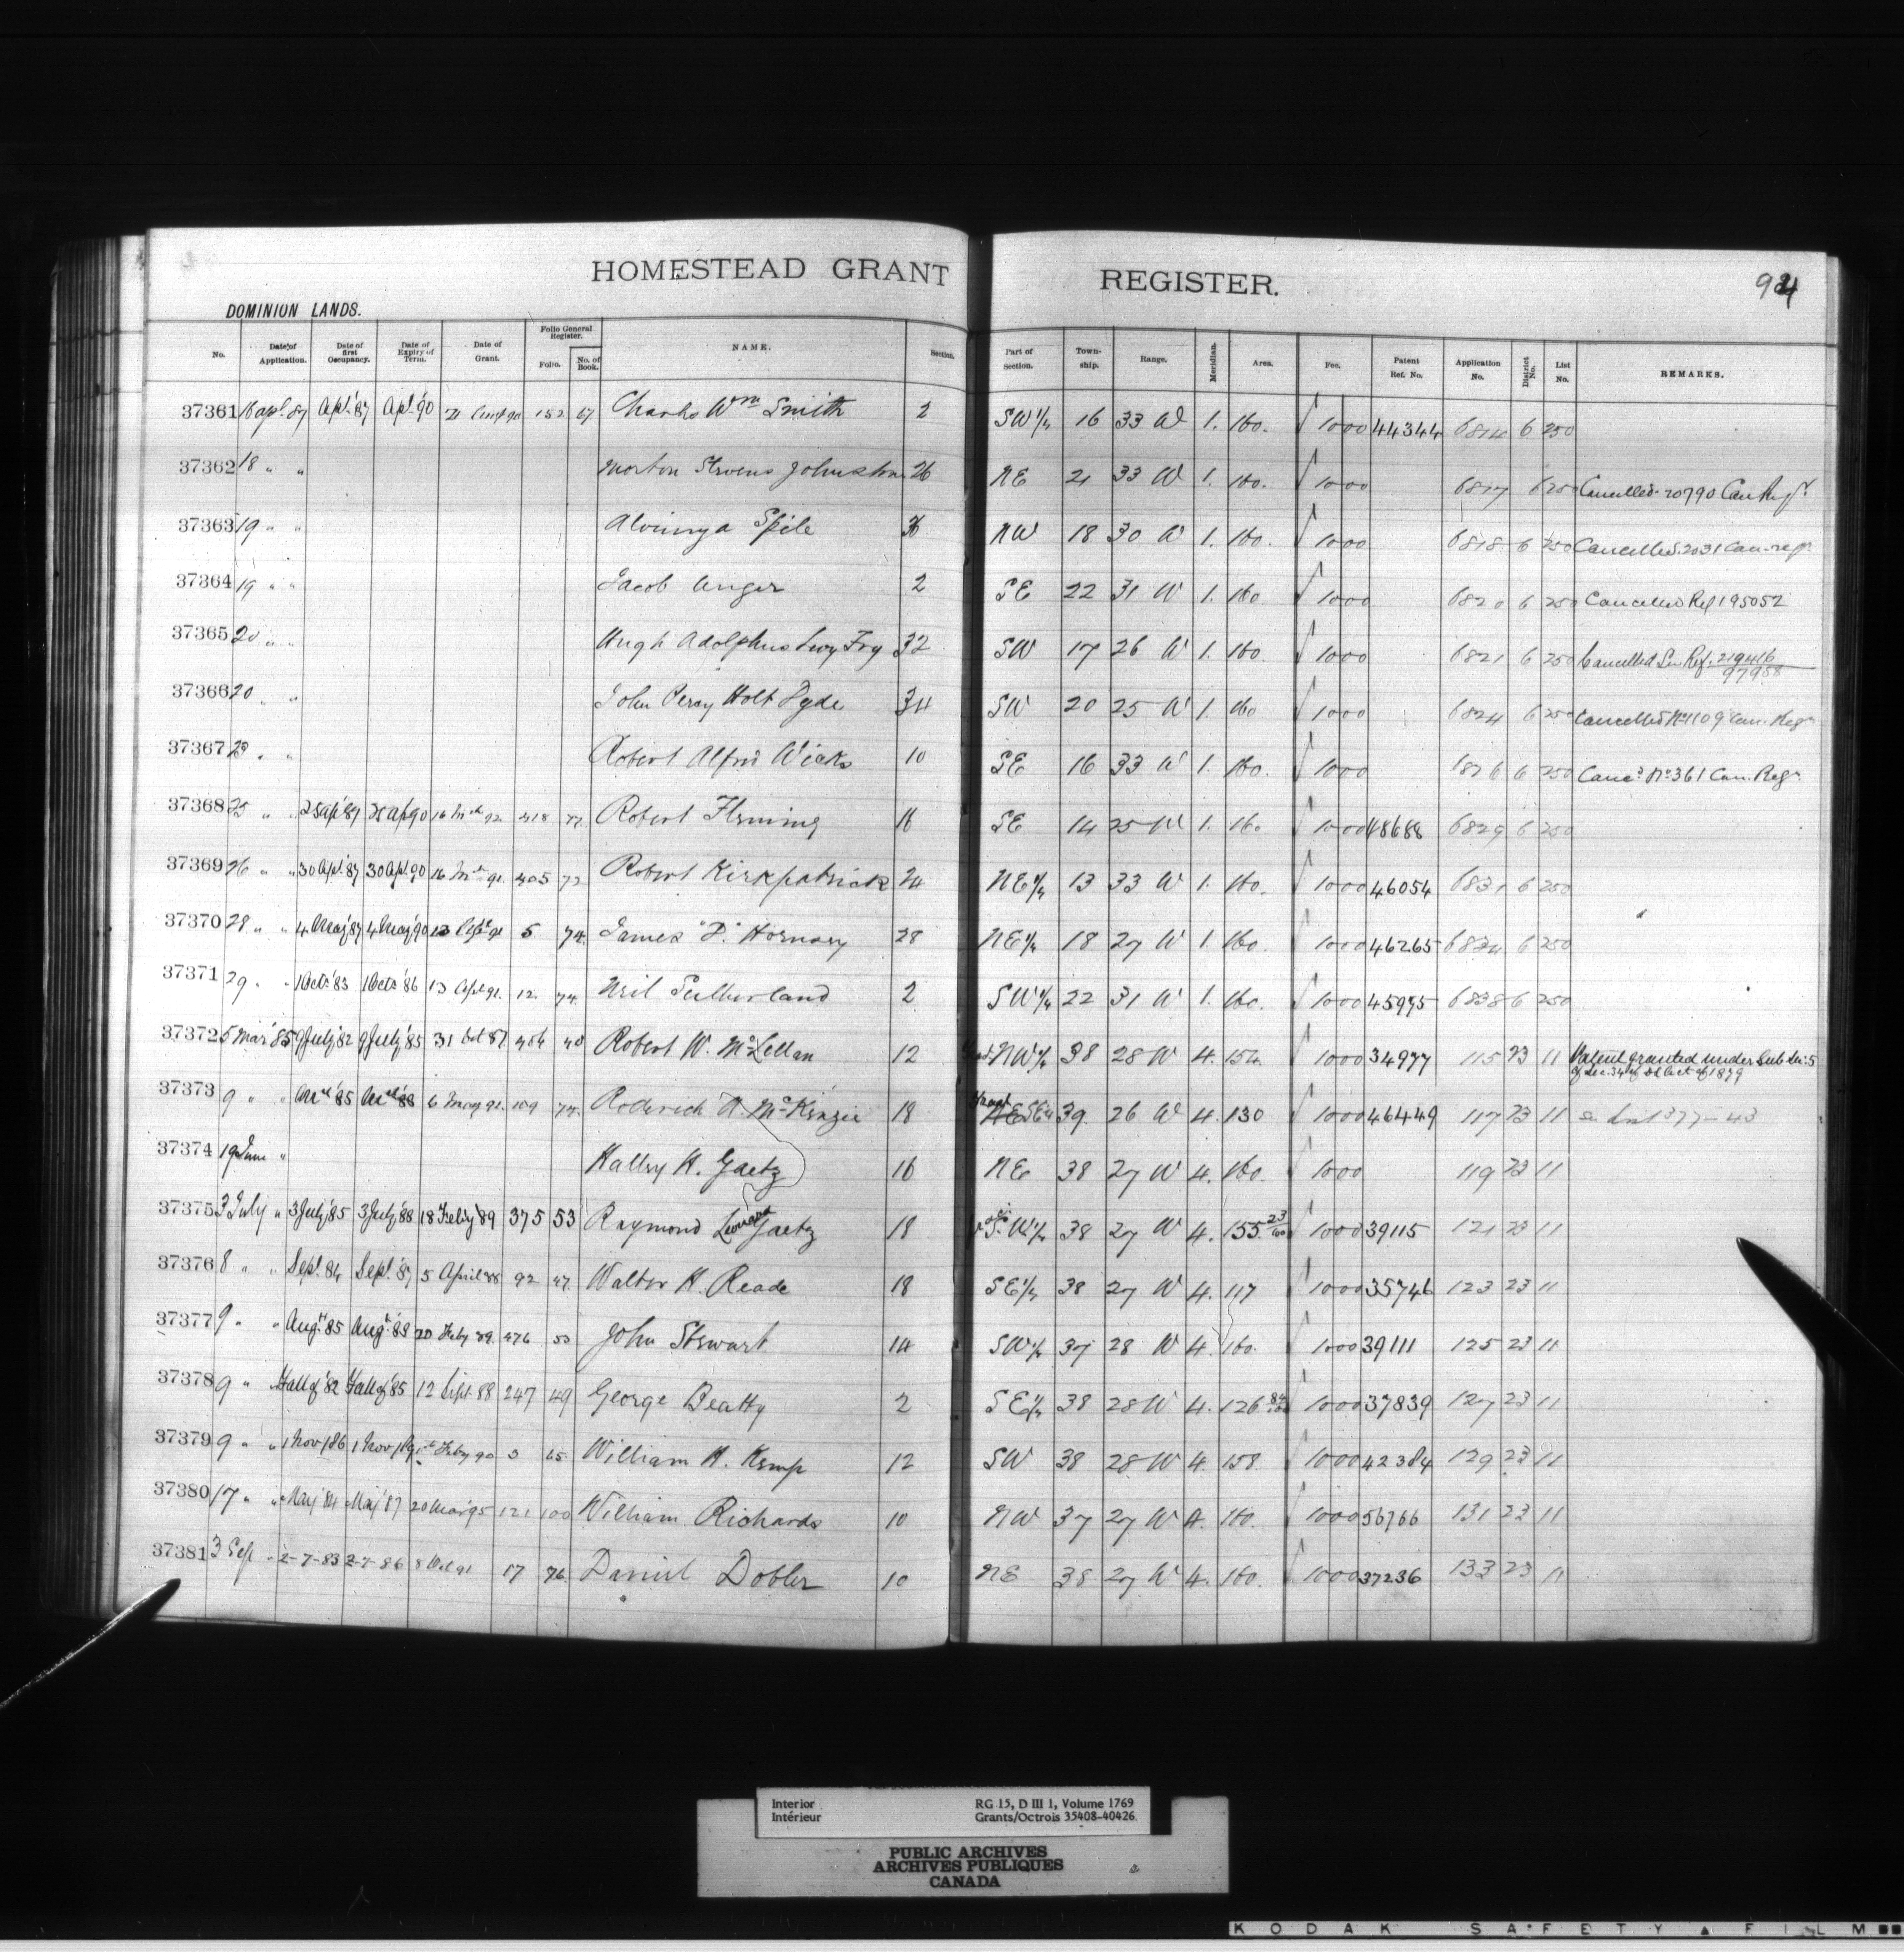 HOMESTEAD GRANT REGISTER.
94
DOMINION LANDS.
No. Date of Application. Date of first Occupancy. Date of Expiry of Term. Date of Grant. Folio General Register. Folio. No. of Book. NAME. Section. Part of Section. Township. Range. Meridian. Area. Fee. Patent Ref. No. Application No. District No. List No. REMARKS.
37361 16 apl. 87 Apl. '87 Apl. '90 152 67 Charles Wm Smith 2 SW 1/4 16 33 W 1. 160. 1000 44344 6814 6 250
37362 18 " " Morton Stevens Johnston 26 NE 21 33 W 1. 160. 1000 6817 6 250 Cancelled 20790 Can Regr
37363 19 " " Spile 36 NW 18 30 W 1. 160. 1000 6818 6 250 Cancelled 2031 Can. regr.
37364 19 " " Jacob Unger 2 SE 22 31 W 1. 160. 1000 6820 6 250 Cancelled Ref 195052
37365 20 " " Hugh Adolphus Fry 32 SW 17 26 W 1. 160. 1000 6821 6 250 Cancelled See Ref. 219416 / 97958
37366 20 " " John Percy Holt Pyde 34 SW 20 25 W 1. 160 1000 6824 6 250 Cancelled No 1109 Can. Regr
37367 23 " " Robert Alfred Wicks 10 SE 16 33 W 1. 160. 1000 1826 6 250 Canc. No 361 Can. Regr.
37368 25 " " 25 Ap '87 25 Ap 90 16 418 77. Robert Fleming 16 SE 14 25 W 1. 160 1000 48688 6829 6 250
37369 26 " " 30 Apl. '87 30 Apl. 90 16 91. 405 72 Robert Kirkpatrick 24 NE 1/4 13 33 W 1. 160. 1000 46054 6831 6 250
37370 28 " " 4 May '87 4 May '90 13 91 5 74. James "P." Hornsey 28 NE 1/4 18 27 W 1. 160. 1000 46265 6834 6 250
37371 29 " " 1 Octr. 83 1 Octr '86 13 91. 12. 74. Neil Sutherland 2 SW 1/4 22 31 W 1. 160. 1000 45975 6838 6 250
37372 5 Mar '85 9 July '82 9 July '85 31 Oct 87 406 40 Robert W. McLellan 12 NW 1/4 38 28 W 4. 154. 1000 34977 115 23 11 Patent granted under Sub Sec. 5
of Sec. 34 of DL Act of 1879
37373 9 " " '85 '88 6 May 91. 109 74. Roderick A. McKenzie 18 Fract NE SE 1/4 39. 26 W 4. 130 1000 46449 117 23 11 377-43
37374 19 June " Halley H. Gaetz 16 NE 38 27 W 4. 160. 1000 119 23 11
37375 3 July " 3 July '85 3 July '88 18 Feby '89 375 53 Raymond Leonard Gaetz 18 S.W 1/4 38 27 W 4. 155 23/100 1000 39115 121 23 11
37376 8 " " Sept. 84 Sept. '87 5 April '88 92 47. Walter H. Reade 18 SE 1/4 38 27 W 4. 117 1000 35746 123 23 11
37377 9 " " Augt. 85 Augt. 88 20 Feby 89. 476 53 John Stewart 14 SW 1/4 37 28 W 4. 160. 1000 39111 125 23 11
37378 9 " Fall of '82 Fall of '85 12 Sept. 88 247 49 George Beatty 2 SE 1/4 38 28 W 4. 126 1000 37839 127 23 11
37379 9 " " 1 Nov/86 1 Nov/89 Feby 90 3 65 William H. Kemp 12 SW 38 28 W 4. 158. 1000 42384 129 23 11
37380 17 " " May '84 May '87 20 Mar '95 121 100 William Richards 10 NW 37 27 W 4. 160. 1000 56766 131 23 11
37381 3 Sep " 2-7-83 2-7-86 8 Oct 91 17 76. Daniel Dobler 10 NE 38 27 W 4. 160. 1000 37236 133 23 11
Interior RG 15, D III 1, Volume 1769
Intérieur Grants/Octrois 35408-40426
PUBLIC ARCHIVES
ARCHIVES PUBLIQUES
CANADA
KODAK SAFETY FILM